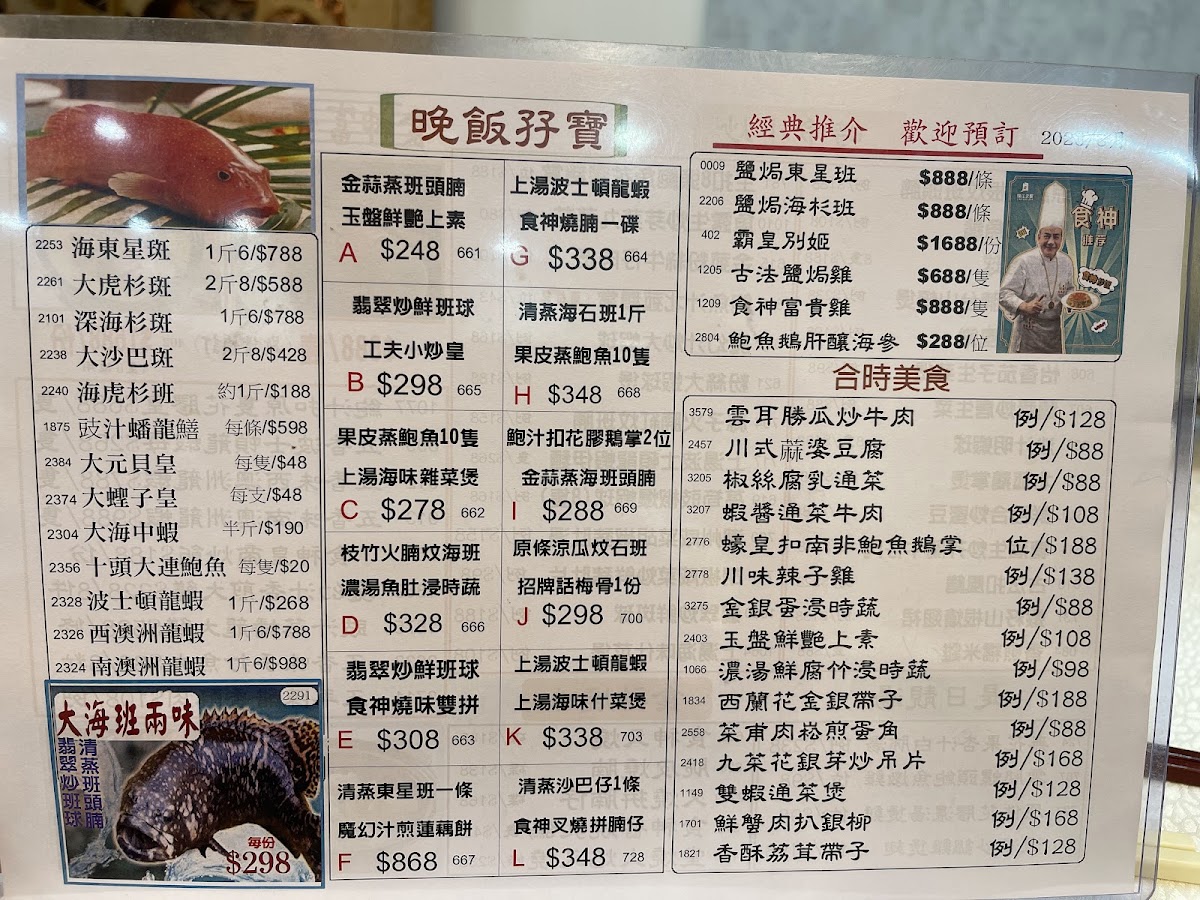 晚飯孖寶
2253 海東星斑 1斤6/$788
2261 大虎杉斑 2斤8/$588
2101 深海杉斑 1斤6/$788
2238 大沙巴斑 2斤8/$428
2240 海虎杉班 約1斤/$188
1875 豉汁蟠龍鱔 每條/$598
2384 大元貝皇 每隻/$48
2374 大蟶子皇 每支/$48
2304 大海中蝦 半斤/$190
2356 十頭大連鮑魚 每隻/$20
2328 波士頓龍蝦 1斤/$268
2326 西澳洲龍蝦 1斤6/$788
2324 南澳洲龍蝦 1斤6/$988
2291
大海班兩味
清蒸班頭腩
翡翠炒班球
每份
$298
金蒜蒸班頭腩
玉盤鮮艷上素
A $248 661
翡翠炒鮮班球
工夫小炒皇
B $298 665
果皮蒸鮑魚10隻
上湯海味雜菜煲
C $278 662
枝竹火腩炆海班
濃湯魚肚浸時蔬
D $328 666
翡翠炒鮮班球
食神燒味雙拼
E $308 663
清蒸東星班一條
魔幻汁煎蓮藕餅
F $868 667
上湯波士頓龍蝦
食神燒腩一碟
G $338 664
清蒸海石班1斤
果皮蒸鮑魚10隻
H $348 668
鮑汁扣花膠鵝掌2位
金蒜蒸海班頭腩
I $288 669
原條涼瓜炆石班
招牌話梅骨1份
J $298 700
上湯波士頓龍蝦
上湯海味什菜煲
K $338 703
清蒸沙巴仔1條
食神叉燒拼腩仔
L $348 728
經典推介 歡迎預訂
0009 鹽焗東星班 $888/條
2206 鹽焗海杉班 $888/條
402 霸皇別姬 $1688/份
1205 古法鹽焗雞 $688/隻
1209 食神富貴雞 $888/隻
2804 鮑魚鵝肝釀海參 $288/位
食神
推荐
合時美食
3579 雲耳勝瓜炒牛肉 例/$128
2457 川式蔴婆豆腐 例/$88
3205 椒絲腐乳通菜 例/$88
3207 蝦醬通菜牛肉 例/$108
2776 蠔皇扣南非鮑魚鵝掌 位/$188
2778 川味辣子雞 例/$138
3275 金銀蛋浸時蔬 例/$88
2403 玉盤鮮艷上素 例/$108
1066 濃湯鮮腐竹浸時蔬 例/$98
1834 西蘭花金銀帶子 例/$188
2558 菜甫肉崧煎蛋角 例/$88
2418 九菜花銀芽炒吊片 例/$168
1149 雙蝦通菜煲 例/$128
1701 鮮蟹肉扒銀柳 例/$168
1821 香酥荔茸帶子 例/$128